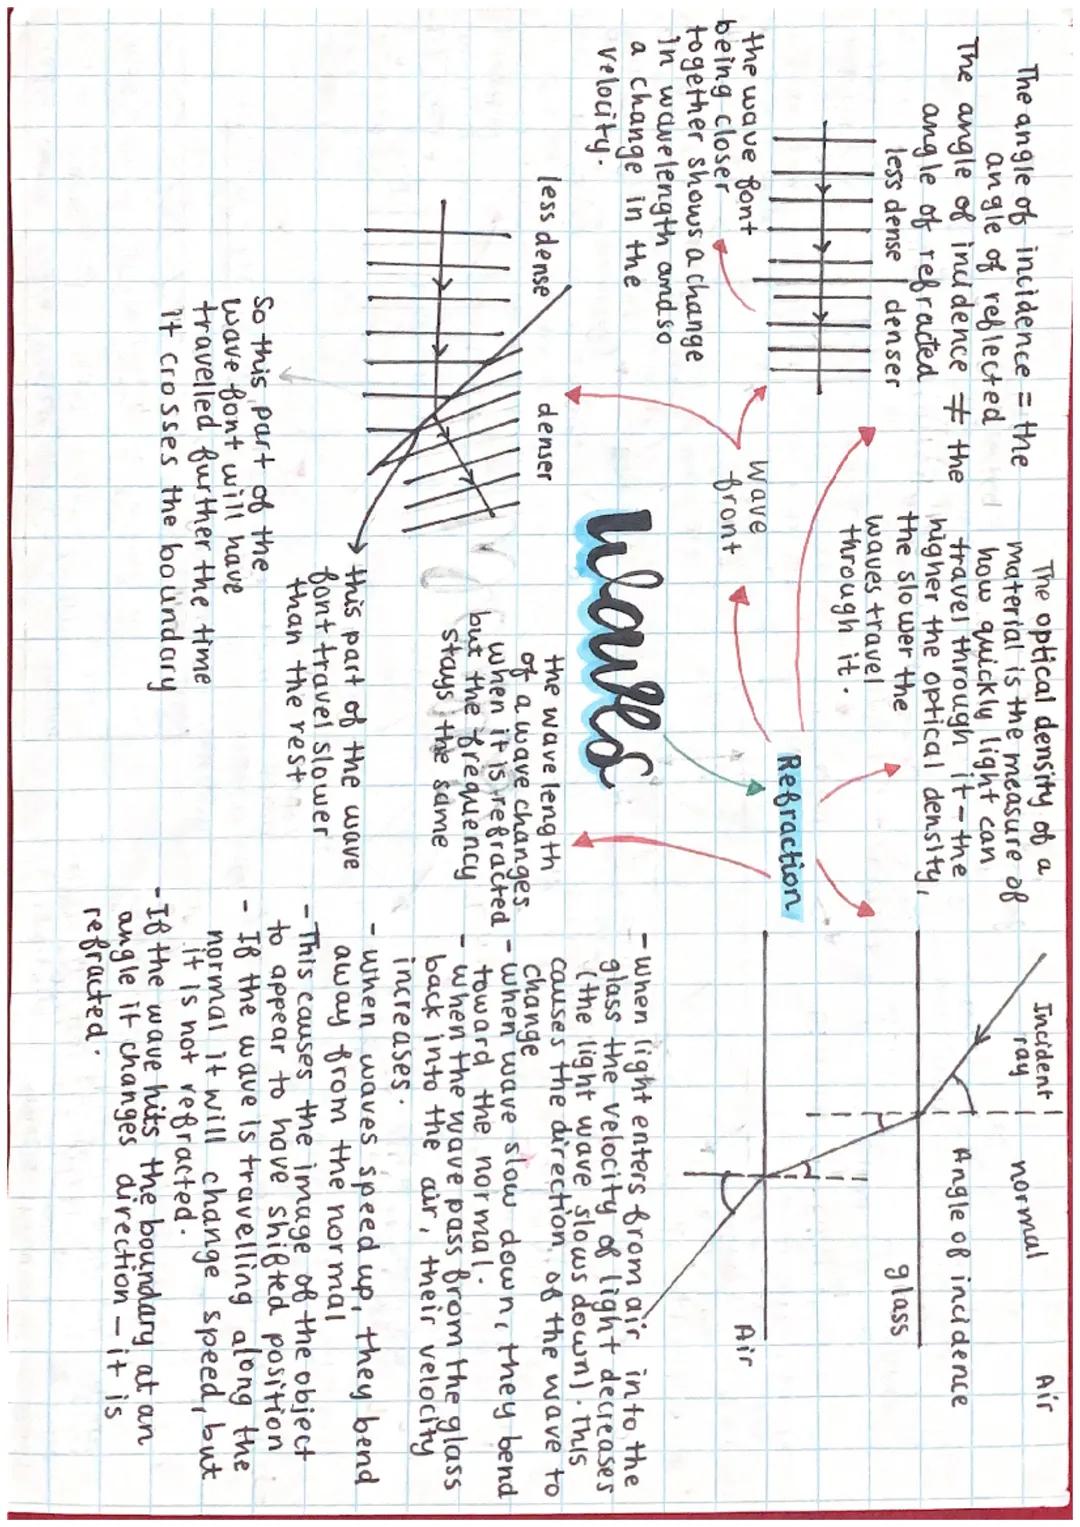 The angle of incidence = the
angle of reflected
The angle of incidence ≠ the
angle of refracted
less dense denser
the wave font
being closer
together shows a change
in wavelength and so
a change in the
velocity.
Wave
front
The optical density of a
material is the measure of
how quickly light can
travel through it - the
higher the optical density,
the slower the
waves travel
through it.
Refraction
Waves
Incident
ray
normal
Air
Angle of incidence
glass
Air
less dense
denser
this part of the wave
font travel slower
than the rest
So this part of the
wave font will have
travelled further the time
it crosses the boundary
the wave length
of a wave changes
when it is refracted
but the frequency
stays the same
- when light enters from air into the
glass the velocity of light decreases
(the light wave slows down). This
cause the direction of the wave to
change
- when wave slow down, they bend
toward the normal.
- when the wave pass from the glass
back into the air, their velocity
increases.
- when waves speed up, they bend
away from the normal
- This causes the image of the object
to appear to have shifted position
- If the wave is travelling along the
normal it will change speed, but
it is not refracted.
- If the wave hits the boundary at an
angle it changes direction - it is
refracted.